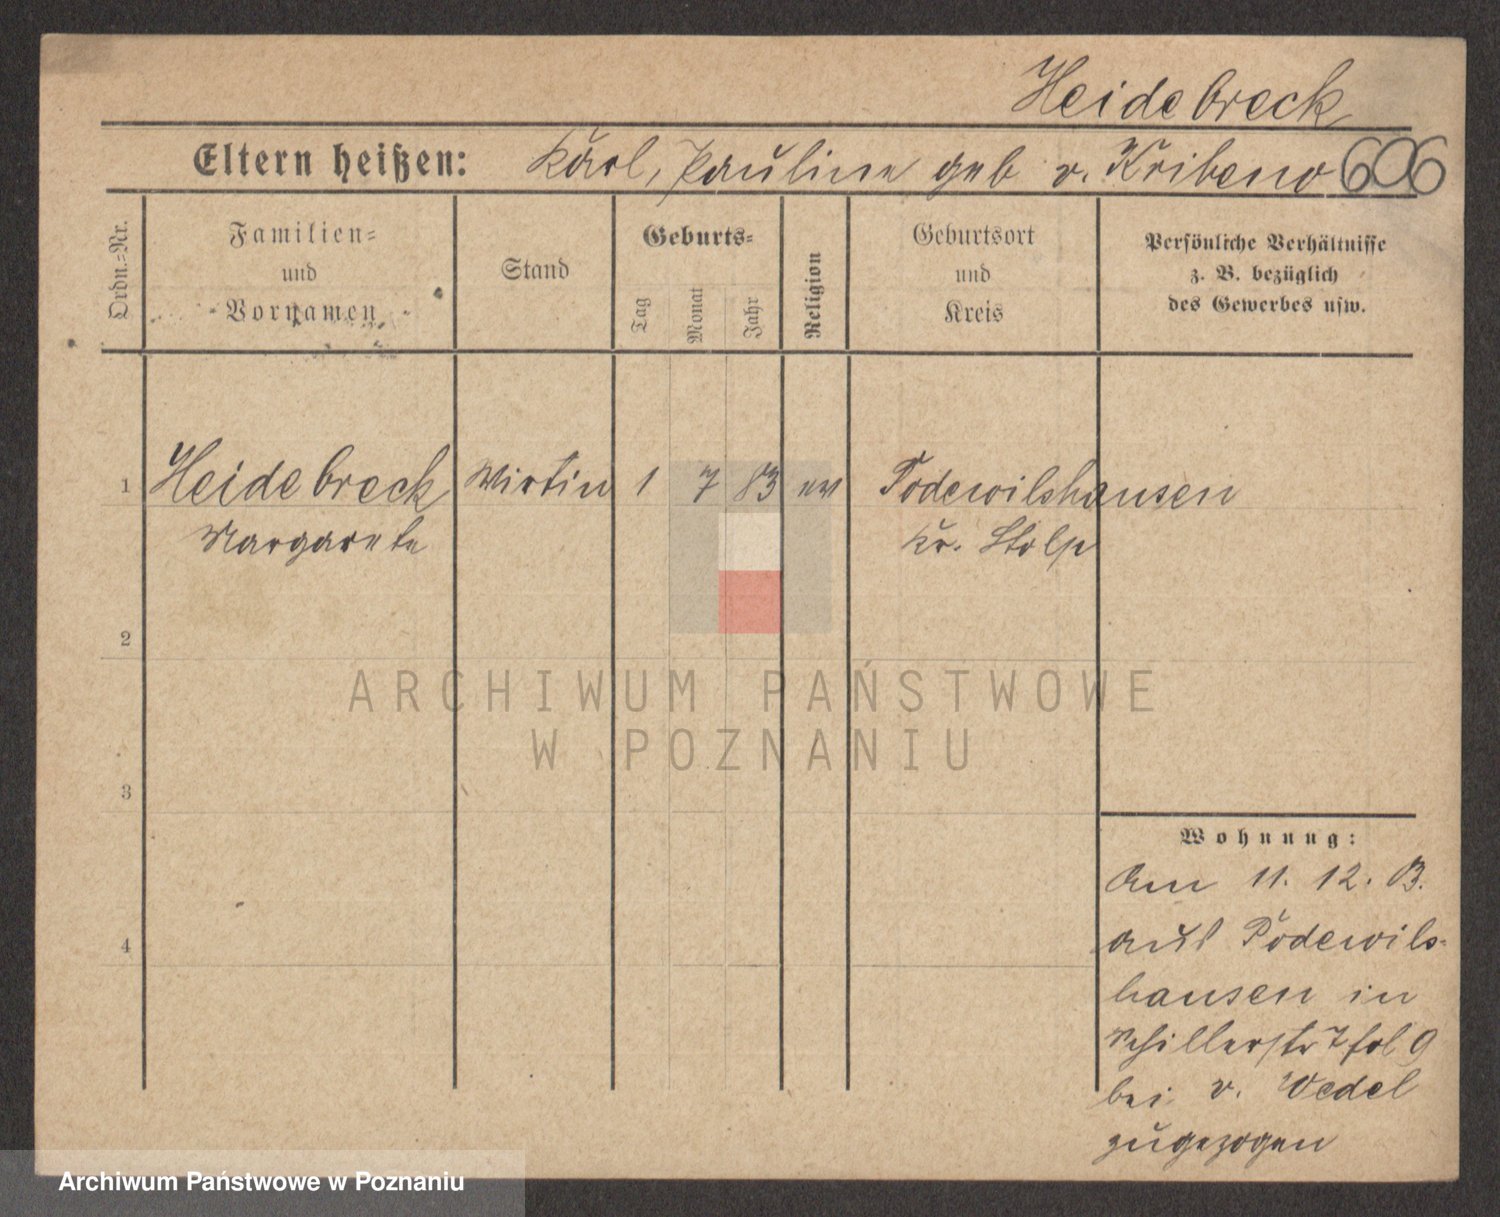 Heidebreck
Eltern heißen: Karl, Pauline geb v. Kribeno 606
Ordn.=Nr.
Familien=
und
Vornamen
Stand
Geburts=
Tag
Monat
Jahr
Religion
Geburtsort
und
Kreis
Persönliche Verhältnisse
z. B. bezüglich
des Gewerbes usw.
1 Heidebreck Wirtin 1 7 83 ev Podewilshausen
Margarete Kr. Stolp
2
ARCHIWUM PAŃSTWOWE
W POZNANIU
3
Wohnung:
Am 11. 12. 13.
4 aus Podewils-
hausen in
Schillerstr 7 fol 9
bei v. Wedel
zugezogen
Archiwum Państwowe w Poznaniu